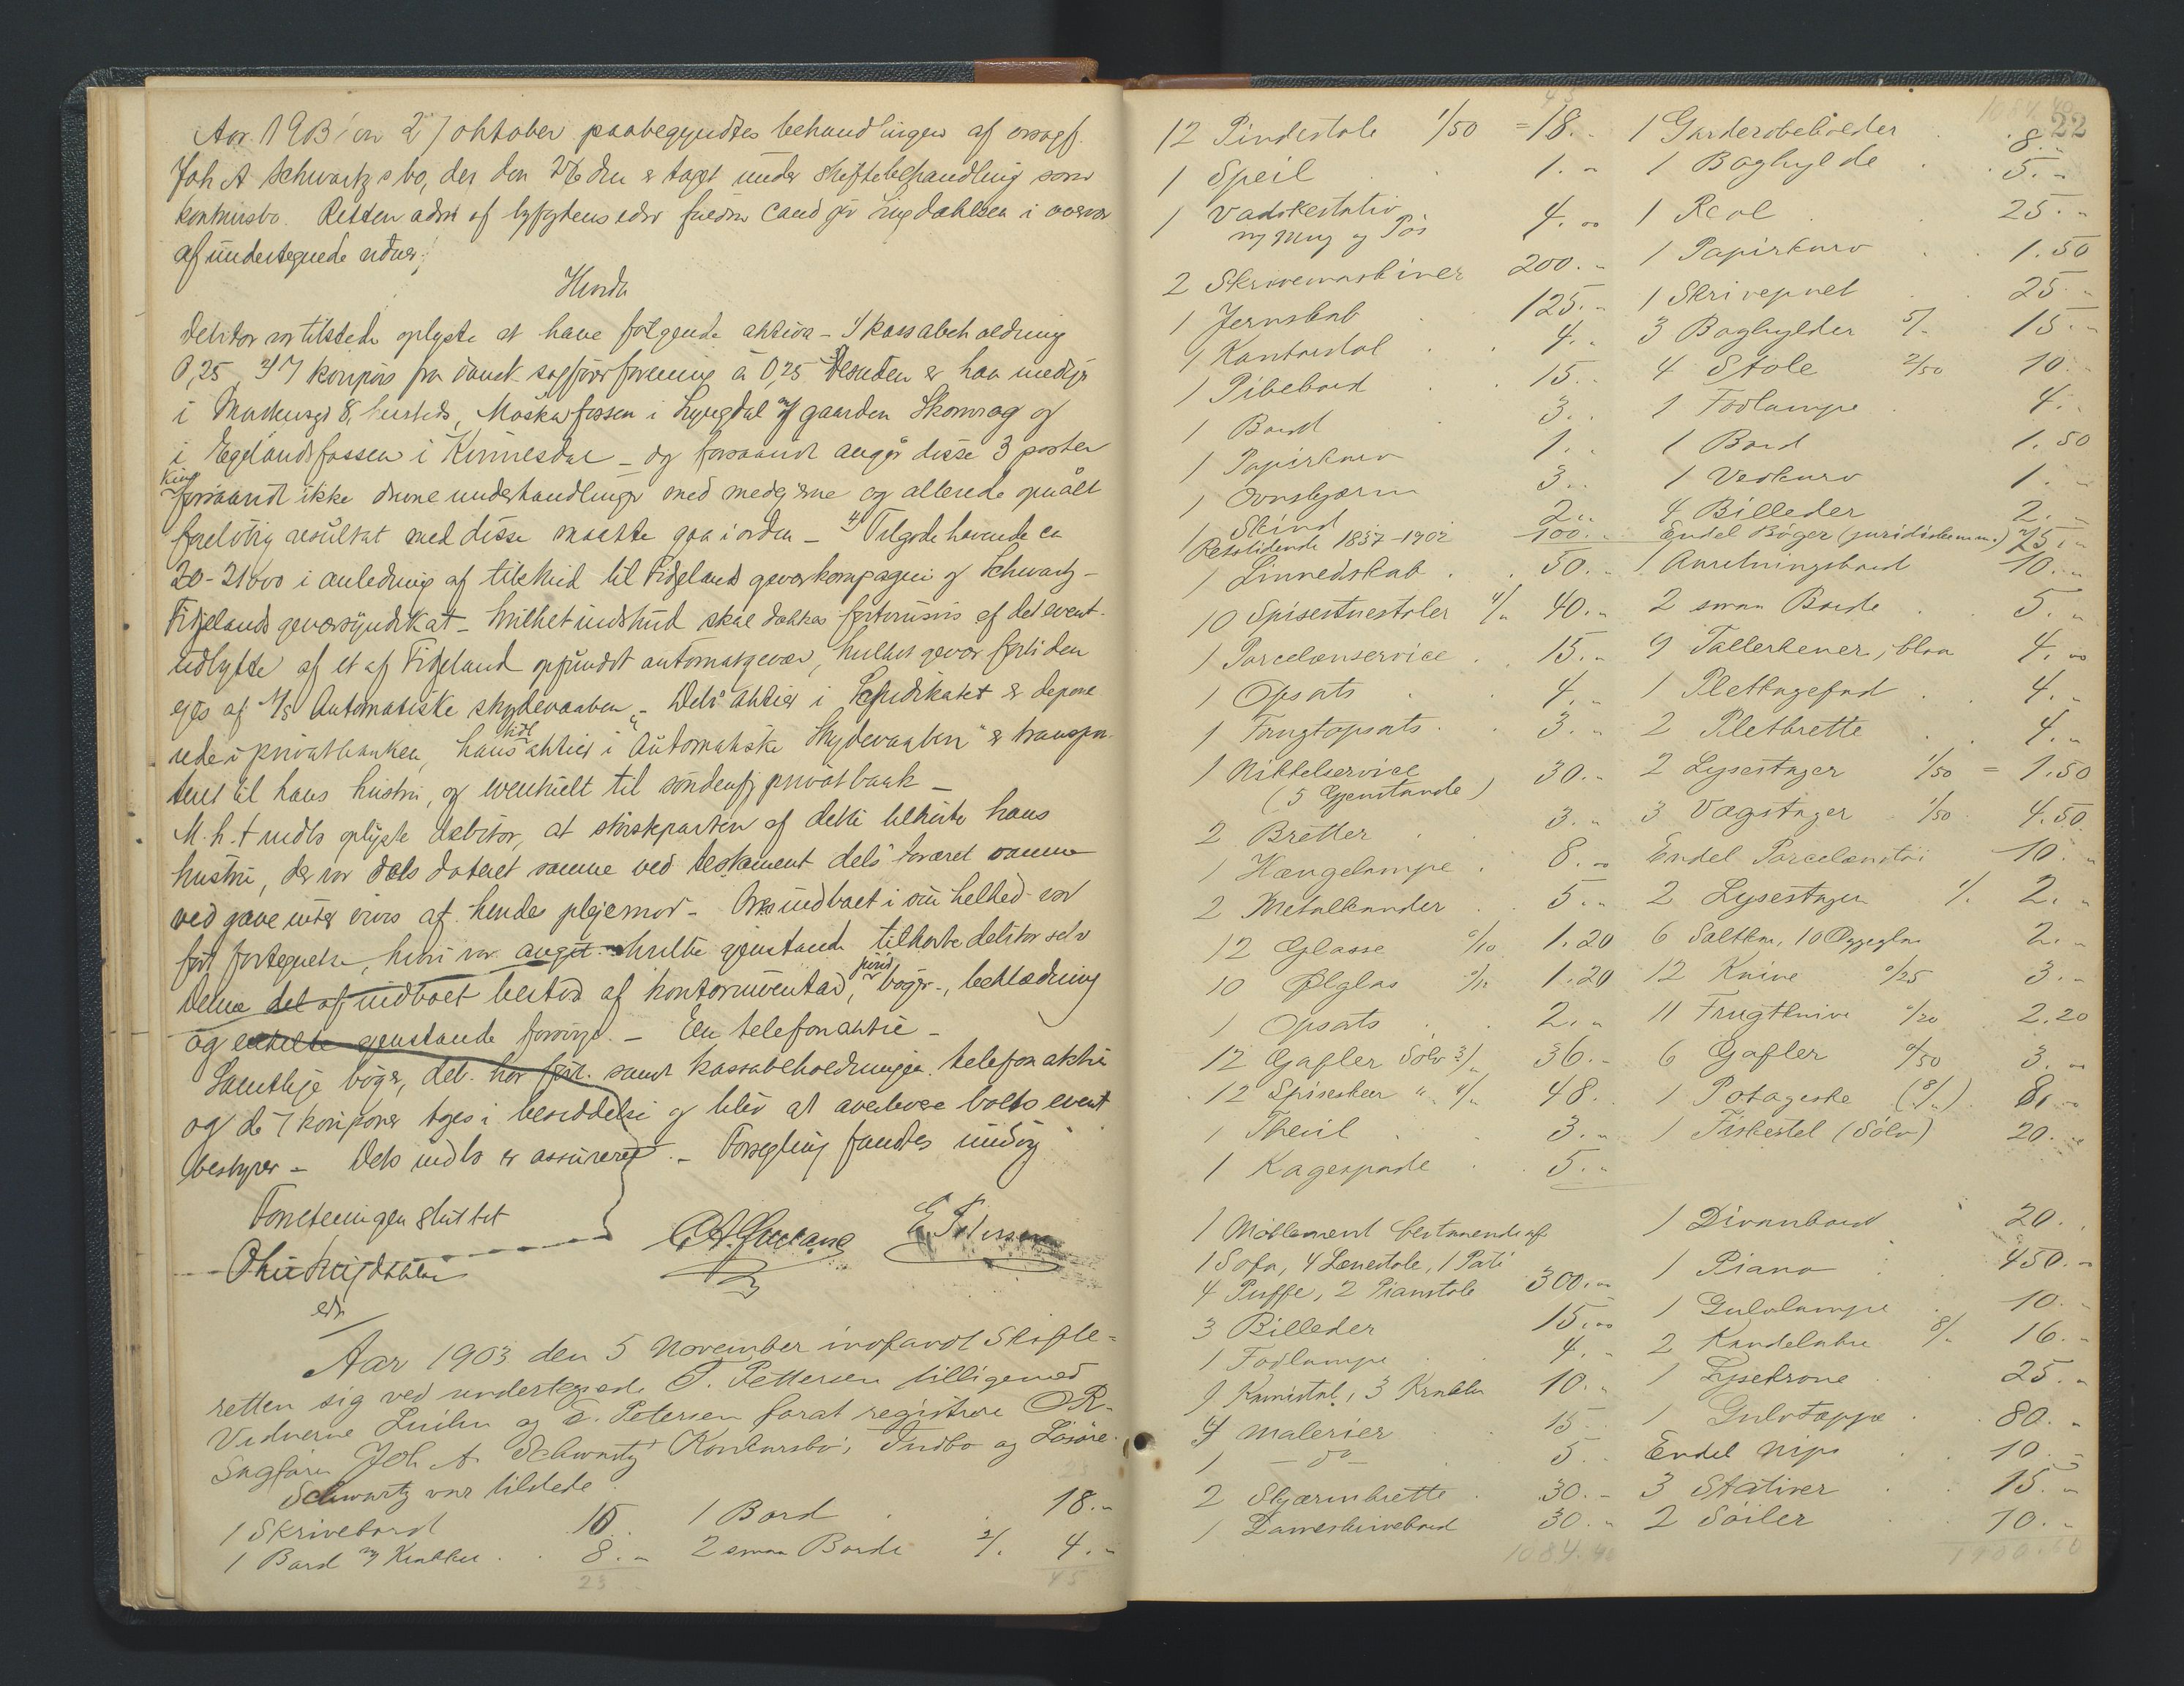 Aar 1903 den 27 oktober paabegyndtes behandlingen af orsagf.
Joh A Schwartz's bo, der den 26 dns er taget under skiftebehandling som
konkursbo. Retten adm af byfogdens edsv fuldm cand jur Ringdahlsen i overvær
af undertegnede vidner:
Hvorda
Debitor var tilstede oplyste at have følgende aktiva – 1) kassabeholdning
0,25 7 kupons fra dansk sagførerforening à 0,25 Desuden er han medejer
i Markensgd 8, i Lyngdal af gaarden Skomrag og
i Egelandsfossen i Kvinesdal – og forsaavidt angår disse 3 poster
kun
forsaavidt ikke denne underhandlinger med medejerne og allerede opnået
foreløbig resultat med disse maatte gaa i orden – 4) Tilgodehavende ca
20-21000 i anledning af tilskud til Fidjeland geværkompagni og Schwartz–
Fidjelands geværsyndikat – hvilket indskud skal dækkes af det event.
udbytte af et af Fidjeland opfundet automatgevær, hvilket gevær fortiden
ejes af A/S Automatiske skydevaaben – Debs aktier i Syndikatet er depone
rede i privatbanken, hans aktier i "Automatiske Skydevaaben" er transpor
teret til hans hustru, og eventuelt til søndenfj privatbank –
M. h. t indbo oplyste debitor, at størsteparten af dette tilhørte hans
hustru, der var dels dateret samme ved testament dels foræret samme
ved gave inter vivos af hendes plejemor – Over indboet i sin helhed var
ført fortegnelse, hvori var angit hvilke gjenstande tilhørte debitor selv
Denne del af indboet bestod af kontorinventar, jurid. bøger, beklædning
og enkelte gjenstande forøvrigt. – En telefonaktie –
Samtlige bøger, deb. har ført. samt kassabeholdningen. telefonaktie
og de 7 kuponer toges i besiddelse og blev at aveilevere boets event
bestyrer – Debs indbo er assureret. – Forsegling fandtes unødig
Forretningen sluttet
E. Petersen
eds.
Aar 1903 den 5 November indfandt Skifte=
retten sig ved undertegnede T. Pettersen tilligemed
Vidnerne og E. Petersen forat registrere OR-
Sagfører Joh A. Schwartz' Konkursbo's Indbo og Løsøre.
Schwartz var tilstede.
1 Skrivebord 15.. 1 Bord 18.–
1 Bord m/ Krakker 8.– 2 smaa Borde 2/. 4.–
23 45
22
12 Pindestole 1/50 = 18.– 1 Garderobeholder 8.–
1 Speil 1.– 1 Boghylde 5.–
1 Vadskestativ 4.00 1 Reol 25.–
m/ Mug og Pøs 1 Papirkurv 1.50
2 Skrivemaskiner 200.– 1 Skrivepult 25–
1 Jernskab 125.– 3 Boghylder 5/. 15.–
1 Kontorstol 4.. 4 Stole 2/50 10.–
1 Pibebord 15.. 1 Fodlampe 4..
1 Bord 3.. 1 Bord 1.50
1 Papirkurv 1.. 1 Vedkurv 1.–
1 Ovnskjærm 3.. 4 Billeder 2.–
1 Skind 2..
Retstidende 1837-1902 100.– Endel Bøger (juridiske m.m.) 25.–
1 Linnedskab 50.– 1 Anretningsbord 10.–
10 Spisestuestoler 4/. 40.– 2 smaa Borde 5.–
1 Porcelænservice 15.– 9 Tallerkener, blaa 4.00
1 Opsats 4.– 1 Pletkagefad 4.–
1 Frugtopsats 3.– 2 Pletbrette 4.–
1 Nikkelservice 30.– 2 Lysestager 1/50 = 1.50
(5 Gjenstande)
2 Bretter 3.– 3 Vægstager 1/50 4.50
1 Hængelampe 8.– Endel Porcelænstøi 10.–
2 Metalkander 5.– 2 Lysestager 1/. 2.–
12 Glasse 0/10 1.20 6 Saltkar, 10 Æggeglas 2.–
10 Ølglas 1.20 12 Knive 0/25 3.–
1 Opsats 2.– 11 Frugtknive 0/20 2.20
12 Gafler Sølv 3/. 36.– 6 Gafler 0/50 3.–
12 Spiseskeer " 4/. 48. 1 Potageske (8/.) 8.–
1 Thesil 3.– 1 Fiskestel (Sølv) 20.–
1 Kagespade 5.–
1 Møblement bestaaende af 1 Divanbord 20.
1 Sofa, 4 Lænestole, 1 1 Piano 450.–
4 Puffe, 2 Pianostole 300.–
3 Billeder 15.00 1 Gulvlampe 10.–
1 Fodlampe 4.– 2 Kandelabre 8/. 16.–
1 3 Krakker 10.– 1 Lysekrone 25.–
4 Malerier 15 1 Gulvtæppe 80.–
1 – do – 5.. Endel Nips 10.–
2 Skjærmbrette 30.– 3 Stativer 15.–
1 Dameskrivebord 30.– 2 Søiler 10.–
1084.40